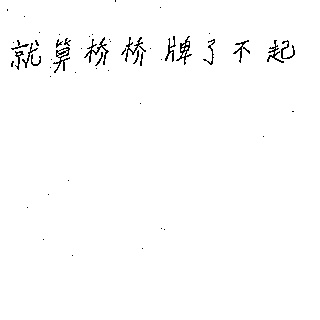 就算桥桥牌了不起